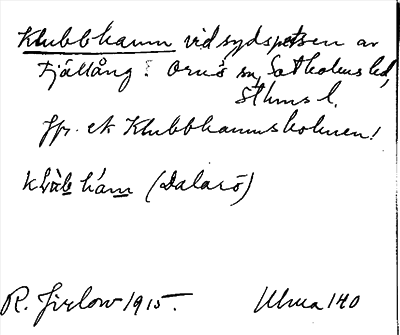 Klubbhamn vid sydspetsen av
Fjällång i Ornö sn, Sotholms hd,
Sthms l.
Jfr. ek Klubbhamnsholmen!
(Dalarö)
R. Jirlow 1915. Ulma 140